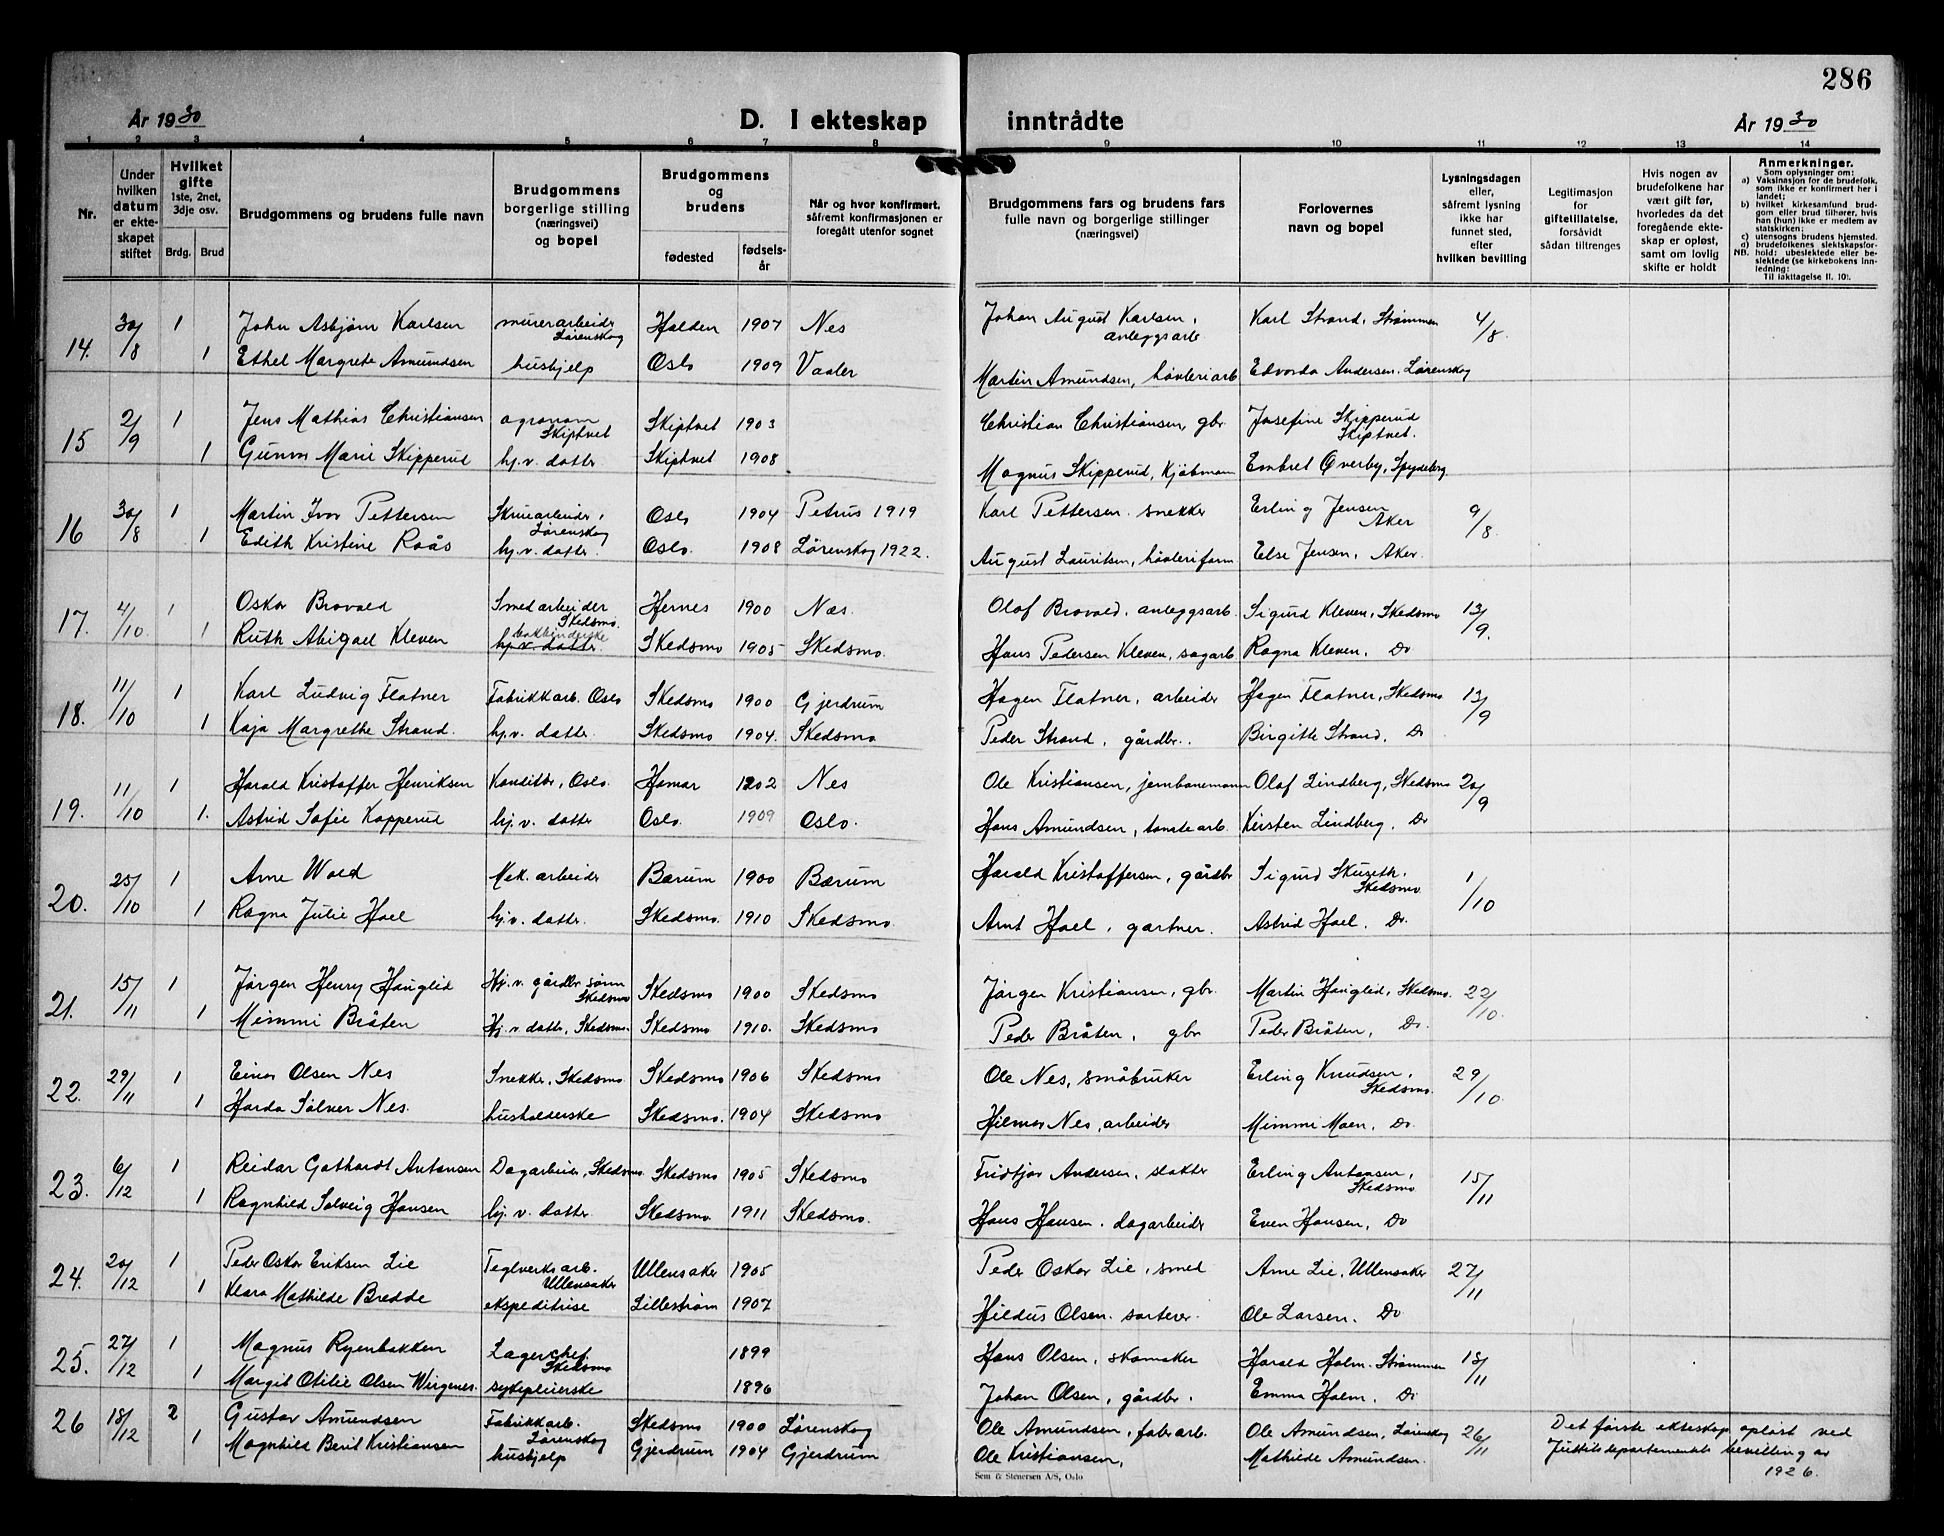 286
År 1930
D. I ekteskap inntrådte
År 1930
1 2 3 4 5 6 7 8 9 10 11 12 13 14
Nr.
Under hvilken datum er ekteskapet stiftet
Hvilket gifte 1ste, 2net, 3dje osv.
Brdg. Brud
Brudgommens og brudens fulle navn
Brudgommens borgerlige stilling (næringsvei) og bopel
Brudgommens og brudens
fødested
fødselsår
Når og hvor konfirmert, såfremt konfirmasjonen er foregått utenfor sognet
Brudgommens fars og brudens fars fulle navn og borgerlige stillinger (næringsvei)
Forlovernes navn og bopel
Lysningsdagen eller, såfremt lysning ikke har funnet sted, efter hvilken bevilling
Legitimasjon for giftetillatelse, forsåvidt sådan tiltrenges
Hvis nogen av brudefolkene har vært gift før, hvorledes da det foregående ekteskap er opløst, samt om lovlig skifte er holdt
Anmerkninger.
Som oplysninger om:
a) Vaksinasjon for de brudefolk, som ikke er konfirmert her i landet;
b) hvilket kirkesamfund brudgom eller brud tilhører, hvis han (hun) ikke er medlem av statskirken;
c) utensogns brudens hjemsted.
d) brudefolkenes slektskapsforhold: ubeslektede eller beslektede (se kirkebokens innledning:
NB. Til iakttagelse II. 10).
14. 30/8 1 John Asbjørn Karlsen murerarbeider Lørenskog Halden 1907 Nes Johan August Karlsen, anleggsarb. Karl Strand, Strømmen 4/8.
1 Ethel Margrete Amundsen hushjelp Oslo 1909 Vaaler Martin Amundsen, høvleriarb. Edvarda Andersen, Lørenskog
15 2/9 1 Jens Mathias Christiansen agronom Skiptvet Skiptvet 1903 Christian Christiansen, gbr. Josefine Skipperud Skiptvet.
1 Gunvor Marie Skipperud hj. v. datter Skiptvet 1908 Magnus Skipperud, kjøbmann Embret Øverby, Spydeberg
16 30/8 1 Martin Ivar Pettersen Skruarbeider, Lørenskog Oslo 1904 Petrus 1919 Karl Pettersen snekker Erling Jensen Aker 9/8.
1 Edith Kristine Raås hj. v. datter. Oslo. 1908 Lørenskog 1922. August Lauritsen, høvleriform Else Jensen, Aker.
17. 4/10. 1 Oskar Bravold Smedarbeider Skedsmo. Hernes 1900 Næs. Olaf Bravold, anleggsarb. Sigurd Kleven, Skedsmo 13/9.
1 Ruth Abigael Kleven bokbinderske hj. v. datter. Skedsmo 1905 Skedsmo. Hans Pedersen Kleven, sagarb Ragna Kleven, Do
18. 11/10 1 Karl Ludvig Flatner Fabrikkarb. Oslo Skedsmo 1900 Gjerdrum Hagen Flatner, arbeider Hagen Flatner, Skedsmo 13/9
1 Kaja Margrethe Strand. hj. v. datter. Skedsmo 1904. Skedsmo Peder Strand, gårdbr. Birgitte Strand, Do
19. 11/10 1 Harald Kristoffer Henriksen Konditor, Oslo. Hamar 1902 Nes Ole Kristiansen, jernbanemann Olaf Lindberg, Skedsmo 20/9
1. Astrid Sofie Kopperud hj. v. datter Oslo. 1909 Oslo. Hans Amundsen, tomtearb. Kirsten Lindberg, Do
20. 25/10 1 Arne Wold Mek. arbeider Bærum 1900 Bærum Harald Kristoffersen, gårdbr Sigurd Skuseth, Skedsmo 1/10
1 Ragna Julie Hoel hj. v. datter. Skedsmo. 1910 Skedsmo. Arnt Hoel, gartner. Astrid Hoel. Do.
21. 15/11 1 Jørgen Henry Hauglid Hj. v. gårdbr. sønn Skedsmo Skedsmo 1900 Skedsmo Jørgen Kristiansen, gbr. Martin Hauglid, Skedsmo. 22/10.
1 Mimmi Bråten Hj. v. datter, Skedsmo. Skedsmo 1910. Skedsmo Peder Bråten, gbr Peder Bråten, Do.
22. 29/11 1 Einar Olsen Nes Snekker, Skedsmo. Skedsmo 1906 Skedsmo Ole Nes, småbruker Erling Knudsen, Skedsmo. 29/10.
1 Harda Sølver Nes. husholderske Skedsmo. 1904 Skedsmo Hilmar Nes, arbeider Mimmi Moen, Do.
23. 6/12 1 Reidar Gothardt Antonsen Dagarbeider, Skedsmo Skedsmo 1905 Skedsmo Fridtjov Andersen, slakter Erling Antonsen, Skedsmo 15/11
1 Ragnhild Solveig Hansen hj. v. datter Skedsmo. 1911 Skedsmo. Hans Hansen, dagarbeider Even Hansen, Do
24. 20/12 1 Peder Oskar Eriksen Lie Teglverksarb. Ullensaker Ullensaker 1905 Peder Oskar Lie, smed Arne Lie, Ullensaker 27/11
1 Klara Mathilde Bredde ekspeditrise Lillestrøm 1907 Hildus Olsen, sorterer Ole Larsen. Do
25. 27/12 1 Magnus Ryenbakken Lagerchef Skedsmo 1899 Hans Olsen, skomaker Harald Holm. Strømmen 18/11
1 Margit Otilie Olsen Wirgenes. sykepleierske 1896 Johan Olsen, gårdbr. Emma Holm, Do
26 18/12 2 Gustav Amundsen Fabrikkarb. Lørenskog Skedsmo 1900 Lørenskog Ole Amundsen, fabr.arb. Ole Amundsen, Lørenskog 26/11 Det første ekteskap opløst ved
1 Magnhild Beril Kristiansen hushjelp Gjerdrum 1904 Gjerdrum Ole Kristiansen, Mathilde Amundsen. Justitsdepartementets bevilling av
1926.
Sem & Stenersen A/S, Oslo